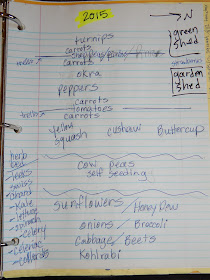 2015
N
turnips
green
shed
carrots
carrots
strawberries
okra
peppers
garden
shed
carrots
tomatoes
carrots
yellow
squash
cushaw
Buttercup
herb
bed
cow peas
self seeding
swiss
chard
- Kale
- lettuce
- spinach
- celery
- collards
sunflowers / Honey Dew
onions / Broccoli
Cabbage / Beets
Kohlrabi